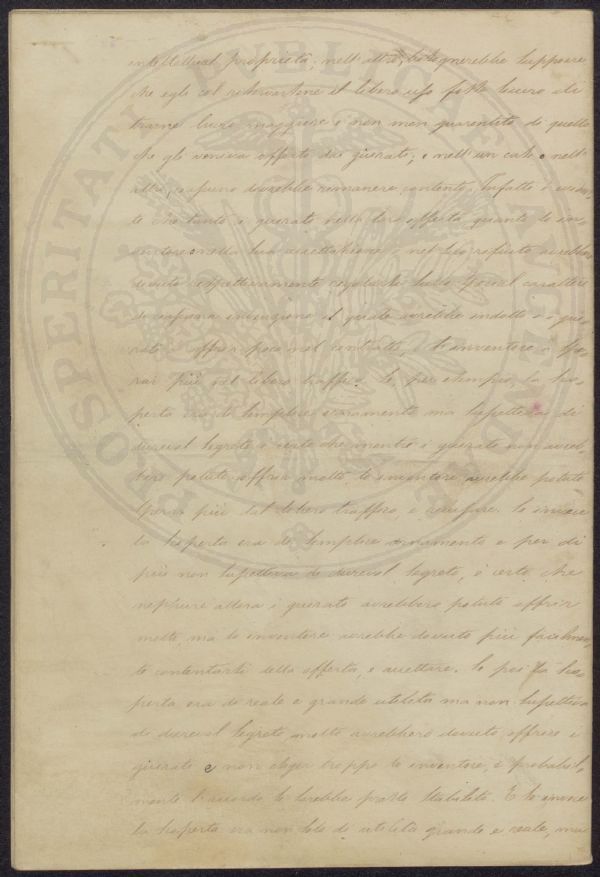 intellettual proprietà; nell'altro, bisognerebbe supporre
che egli col riservarsene il libero uso fosse sicuro di
trarne lucro maggiore e non men guarentito di quello
che gli veniva offerto dai giurati; e nell'un caso e nell'
altro, nessuno dovrebbe rimanere contento. Infatti è eviden-
te che tanto i giurati nella loro offerta, quanto lo in-
ventore nella sua accettazione o nel suo rifiuto avrebber
dovuto rispettivamente regolarsi sul carattere
di ciascuna invenzione il quale avrebbe indotto i giu-
rati a offrir poco nel contratto, e lo inventore a spe-
rar più dal libero traffico. Se per esempio, la sco-
perta era di semplice ornamento ma suscettiva di
durevol segreto è certo che mentre i giurati non avreb-
bero potuto offrir molto lo inventore avrebbe potuto
sperar più dal libero traffico, e ricusare. Se invece
la scoperta era di semplice ornamento e per di
più non suscettiva di durevol segreto, è certo che
neppure allora i giurati avrebbero potuto offrir
molto, ma lo inventore avrebbe dovuto più facilmen-
te contentarsi della offerta, e accettare. Se poi la sco-
perta era di reale e grande utilità ma non suscettiva
di durevol segreto molto avrebbero dovuto offrire i
giurati e non esiger troppo lo inventore, e probabil-
mente l'accordo si sarebbe presto stabilito. E se invece
la scoperta era non solo di utilità grande e reale, ma
PROSPERITATI PUBLICAE AUGENDAE